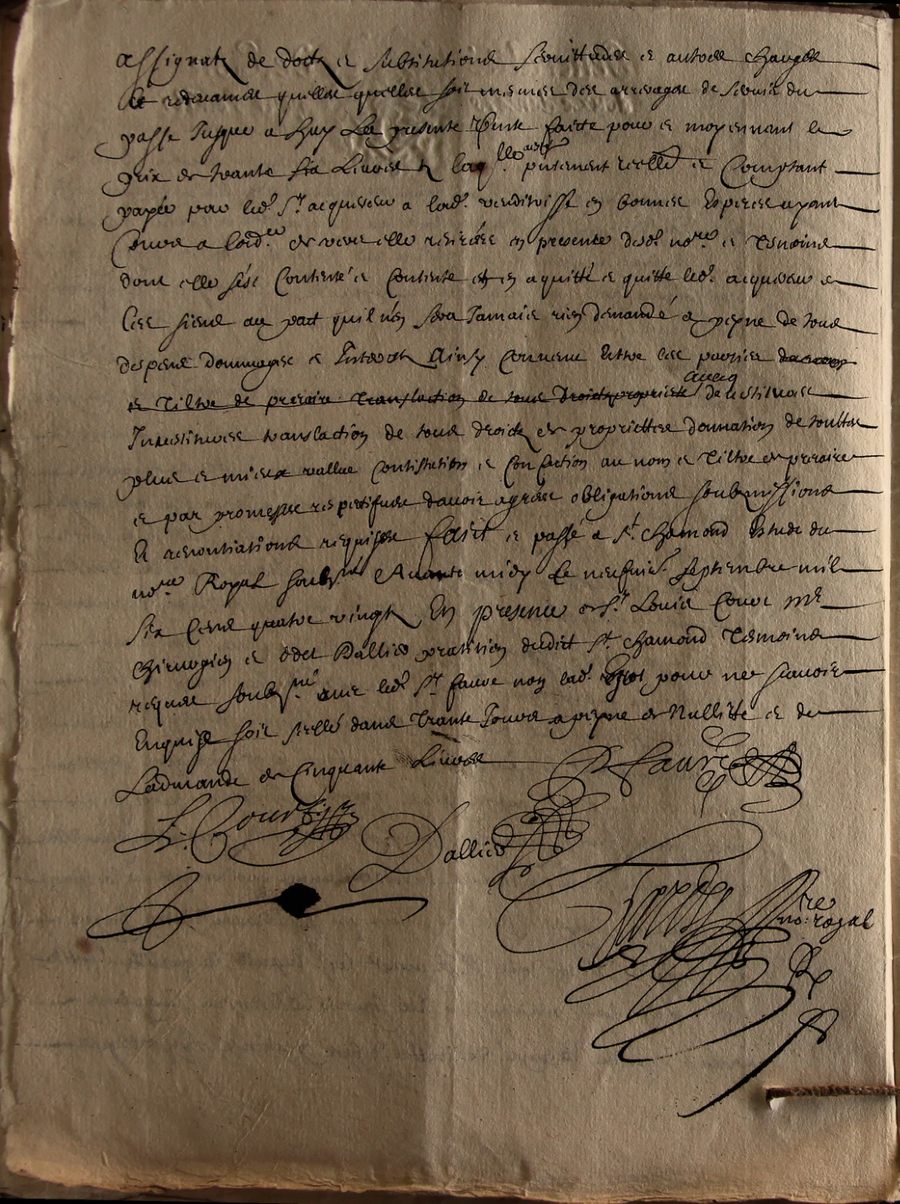 assignatz de dotz et substitutions servittudes et autres charges
et redevances quelles quelles soit mesmes des arreyrages de servis du
passe jusques a huy La presente vente faicte pour et moyennant le
prix de trante six Livres laqlle reellemt et Comptant
payée par led. Sr acquereur a lad. venderisse en bonnes Especes ayant
Cours a lord.re et vers elle retirées en presence desd. no.re et Tesmoins
dont elle s'est Contenté et contente et en a quitté et quitte led. acquereur et
Les siens au pact quil n'en sera Jamais rien demandé a peyne de tous
despens dommages et Interestz Ainsy convenu Entre les parties
et tiltre de precaire translaction de tous droictz proprietés avecq devestitures
Investitures translaction de tous droictz et propriettes donnation de touttes
plus et mieux vallue constitution et confection au nom et tiltre de precaire
et par promesses respectifves d'avoir agreé obligations soubmissions
Et renontiations requises faict et passé a St. Chamond Estude du
no.re Royal soubsné Avant midy Le neufvie. septembre mil
six cens quatre vingtz En presence de Sr. Louis Cour Me
Chirurgien et Dallies praticien dudict St. Chamond Tesmoins
requis soubsné avec led. Sr. faure non lad. pour ne scavoir
Enquise soit sellé dans trante Jours a peyne de Nullitté et de
Ladmande de Cinquante Livres
P Faure
L. Cour
Dallies
no.re royal